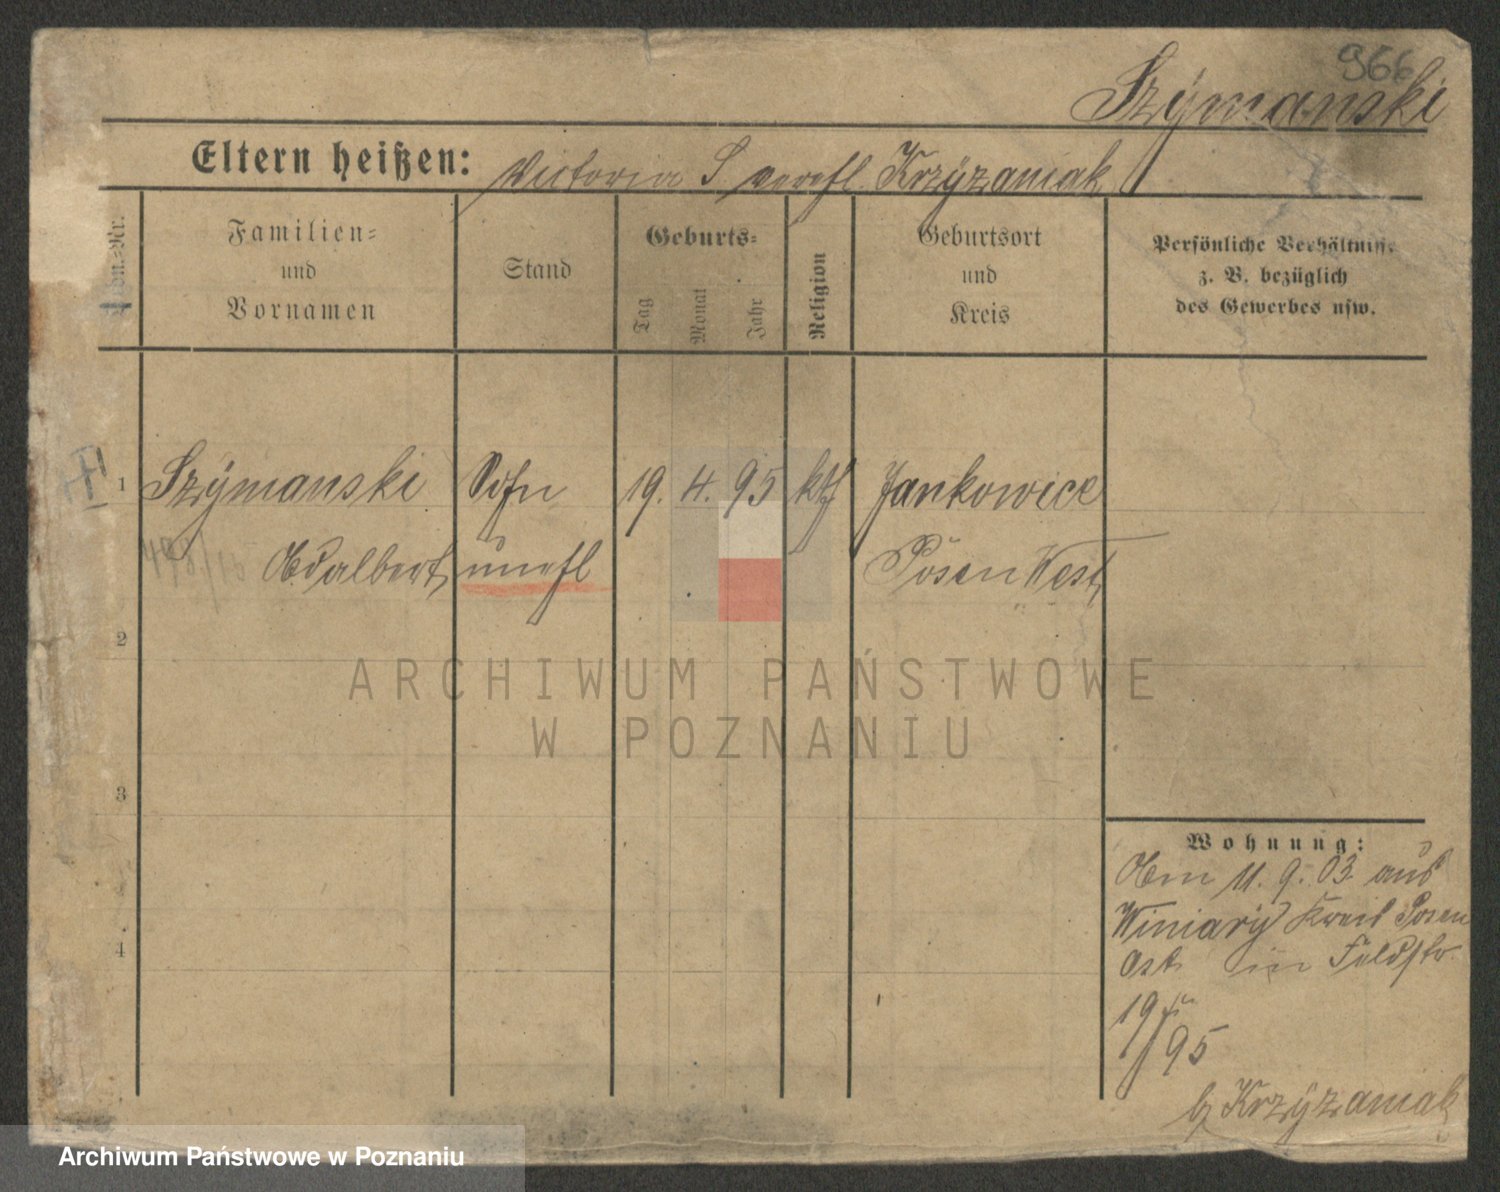 966
Szÿmanski
Eltern heißen: Victoria S verehl. Krzÿzaniak
Nr.
Familien-
und
Vornamen
Stand
Geburts-
Tag
Monat
Jahr
Religion
Geburtsort
und
Kreis
Persönliche Verhältnisse
z. B. bezüglich
des Gewerbes usw.
1 Szÿmanski Sohn 19. 4. 95 kth Jankowice
Adalbert unehl Posen West
2
3
4
Wohnung:
Am 11. 9. 03 aus
Winiary Kreis Posen
Ost in Feldstr.
19
95
b/ Krzÿzaniak
ARCHIWUM PAŃSTWOWE
W POZNANIU
Archiwum Państwowe w Poznaniu